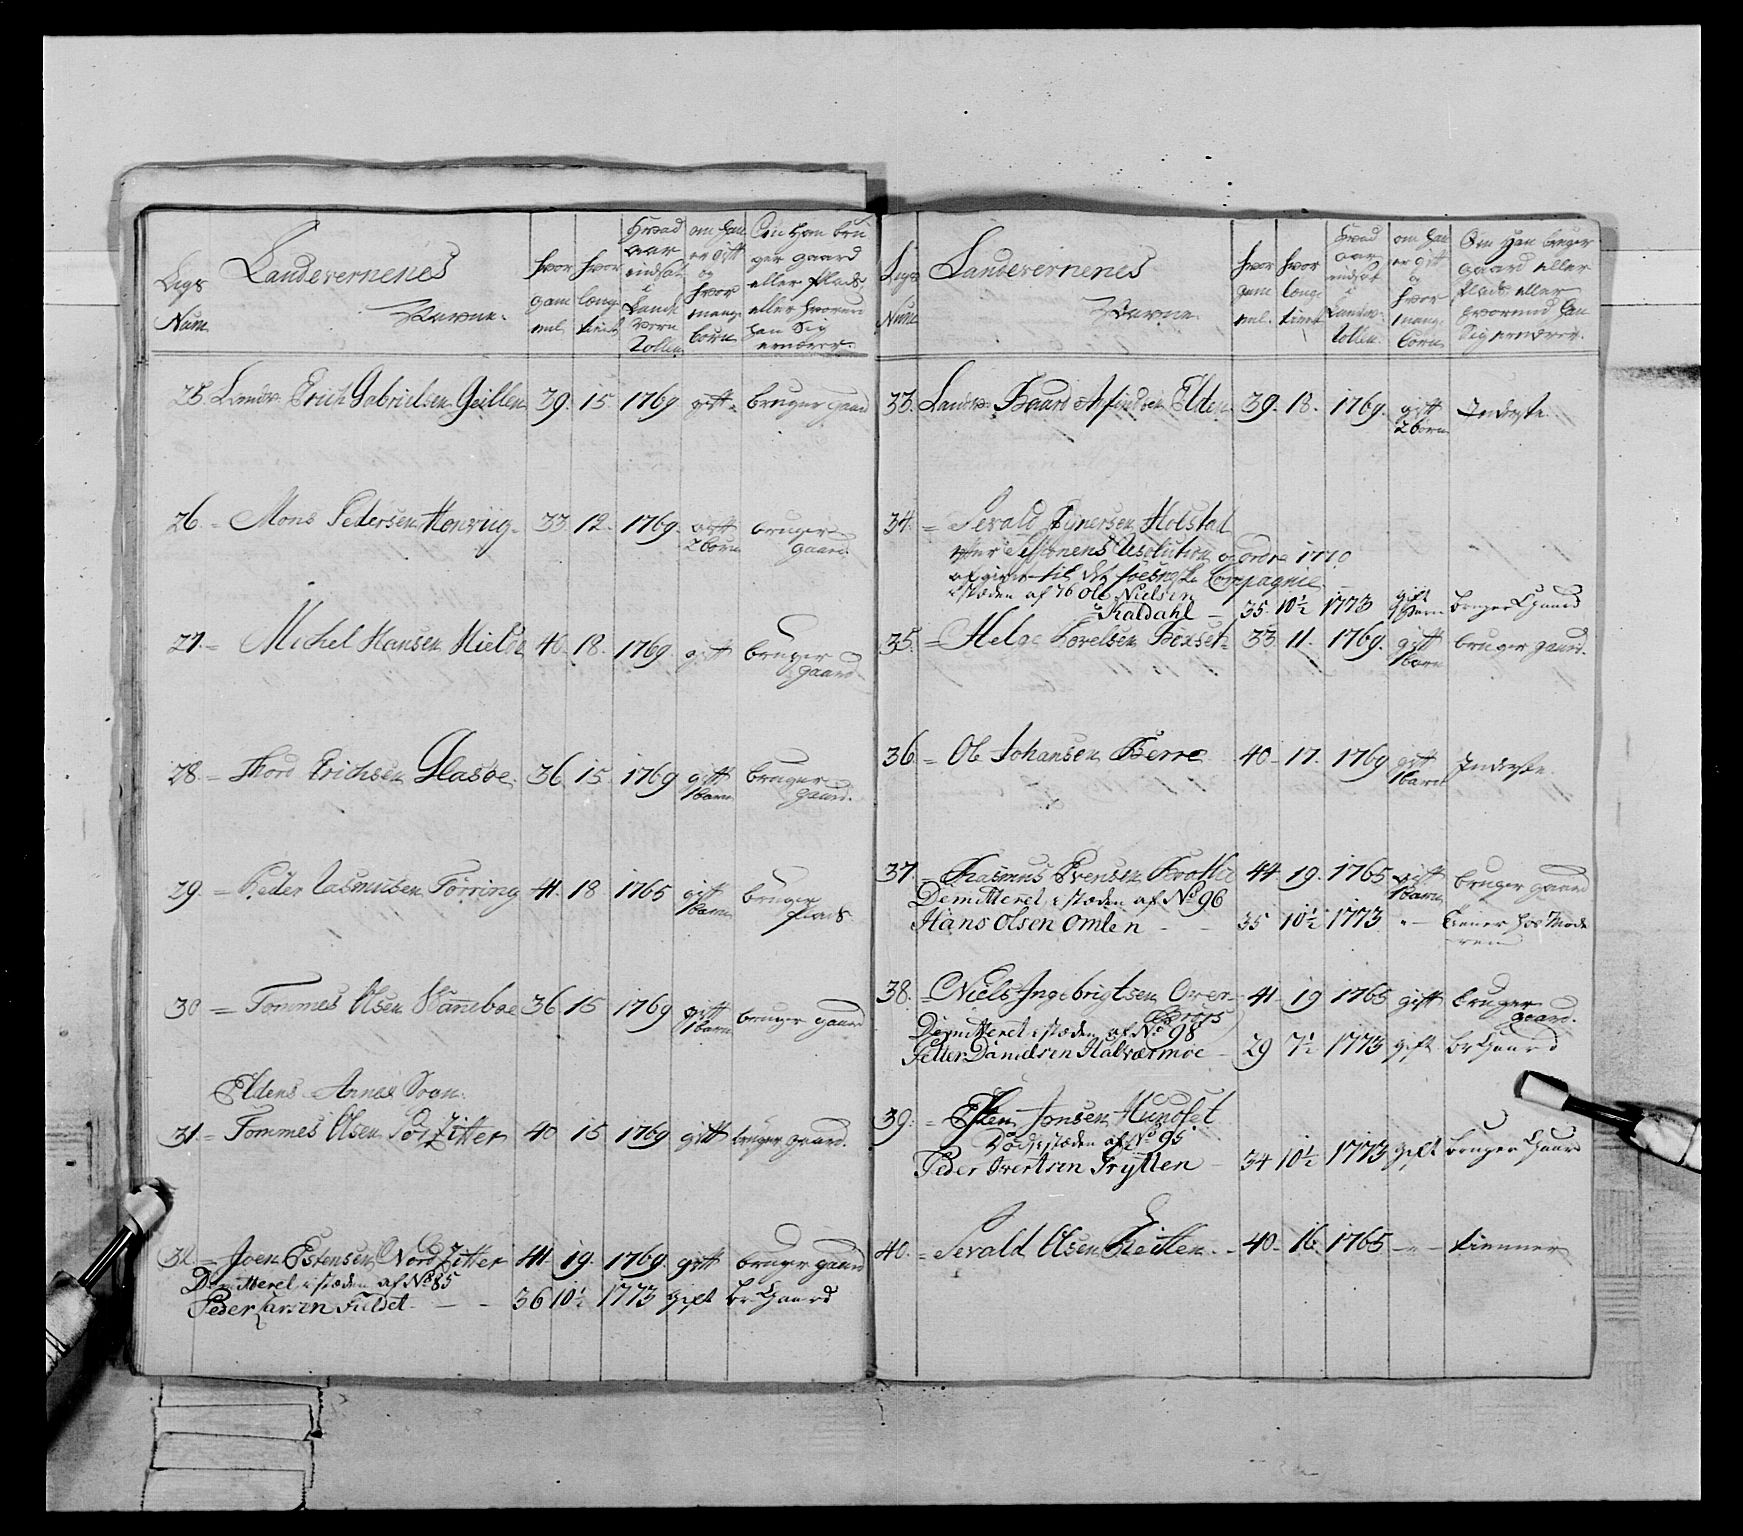 Legs
Num
Landevernenes
Navne.
hvor
gam
mel
hvor
længe
tient
Hvad
aar
indsat
i
Lande
vern
Rollen
om han
er gift
og
hvor
mange
børn
Om han bru
ger gaard
eller Plads
eller hvoraf
han Sig
ernærer.
25. Landv. Erich Gabrielsen 39. 15. 1769 gift bruger gaard
26. = Mons Pedersen 33. 12. 1769. gift bruger
2 børn gaard
27. = Michel Hansen 40. 18. 1769. gift bruger
gaard
28. = Thord Erichsen Glasøe. 36. 15. 1769 gift bruger
1 barn gaard.
29. = Peder Rasmusen Førring 41. 18 1765 gift bruger
1 barn Plads
30 = Tommes Olsen 36 15 1769 gift bruger gaard
1 barn
Eldens Annex Sogn.
31. = Tommes Olsen 40 15 1769 gift bruger gaard.
32. = Joen Estensen Nord Zitter 41. 19. 1769. gift bruger gaard
Demitteret i stæden af No 85
Peder Larsen - - 36 10½ 1773 gift br Gaard
Legs
Num
Landevernenes
Navne.
hvor
gam
mel.
hvor
længe
tient
Hvad
aar
indsat
i
Landv.
Rollen.
om han
er gift
og
hvor
mange
børn
Om Han bruger
gaard eller
Plads eller
hvorved han
Sig ernærer.
33. Landv. Baard Arfindsen Elden. 39. 18. 1769. gift Inderste
2 børn
34. = Sevald Ejnersen Holstad
efter Sessionens Resolution og ordre 1770
afgiven til det Compagnie
i stæden af 76 Ole Nielsen
Kaldahl - 35 10½ 1773 gift bruger Gaard
35. = Helge 33 11. 1769. gift bruger gaard.
1 barn
36. = Ole Johansen Berre 40. 17. 1769 gift Inderste
1 barn
37. = Rasmus Evensen 44. 19. 1765 gift bruger gaard
Demitteret i stæden af No 96 1 barn
Hans Olsen Omlen - - 35 10½ 1773 - tiener hos Mode
ren
38. = Niels Ingebrigtsen Over 41. 19 1765 gift bruger
gaard.
Demitteret i stæden af No 98
Petter Danielsen Halværmoe - 29 7½ 1773 gift br Gaard
39. = Esten Jonsen
Død i stæden af No 95
Peder Frytten - 34 10½ 1773 gift bruger Gaard
40. = Sevald Olsen - 40. 16. 1765 - - tienner